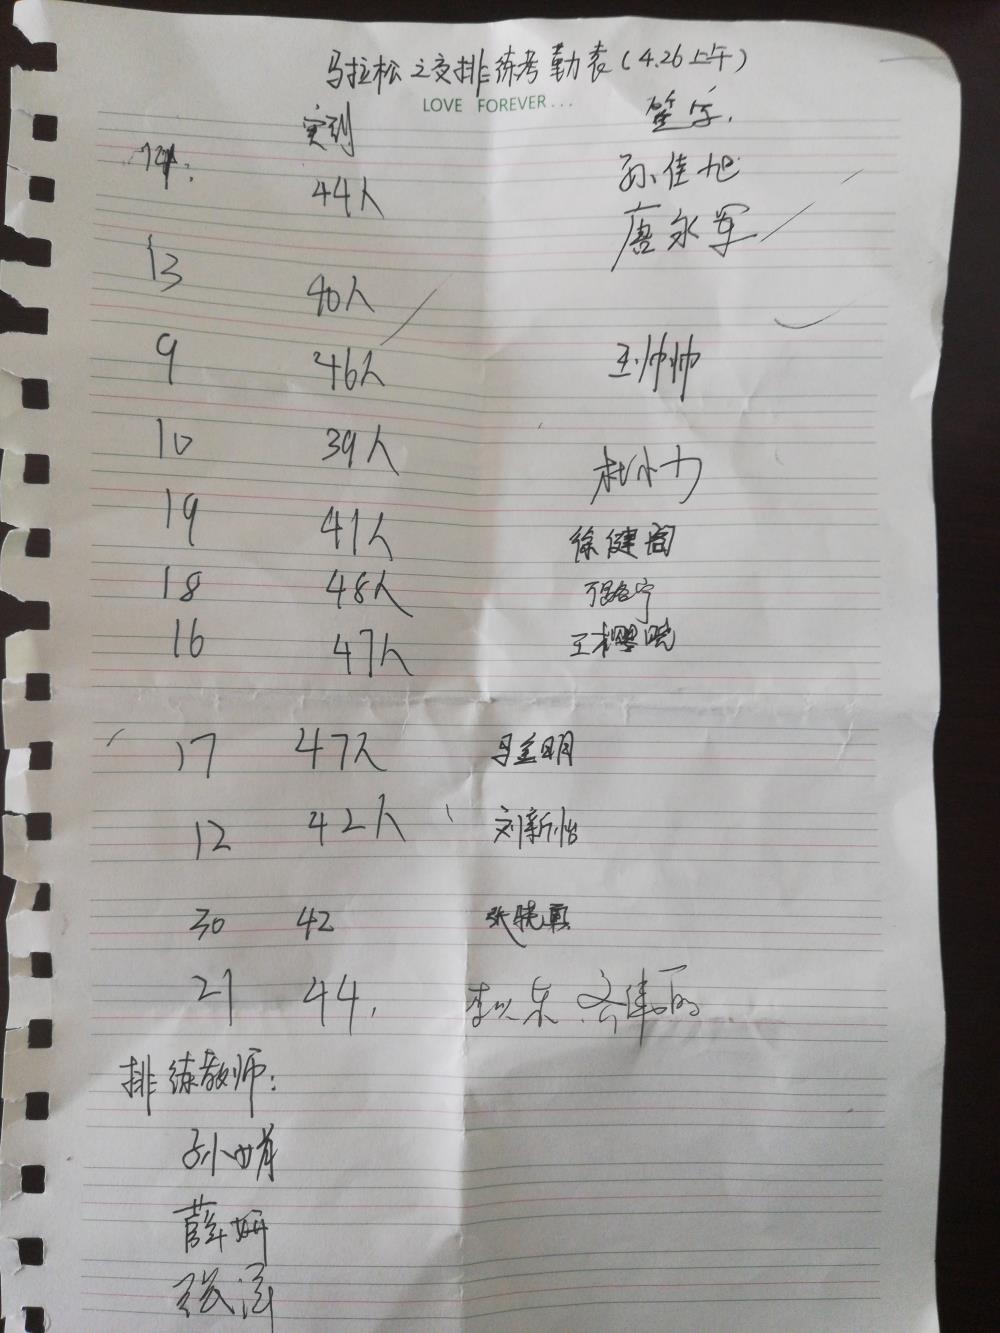 马拉松之夜排练考勤表(4.26上午)
LOVE FOREVER...
实到 签字.
44人 孙佳旭
唐永军
13 40人
9 46人 王帅帅
10 39人 杜小力
19 41人 徐健
18 48人
16 47人 王樱晓
17 47人 马金明
12 42人 刘新怡
30 42 张晓
21 44. 李 齐伟丽
排练教师:
孙
薛妍
张洁